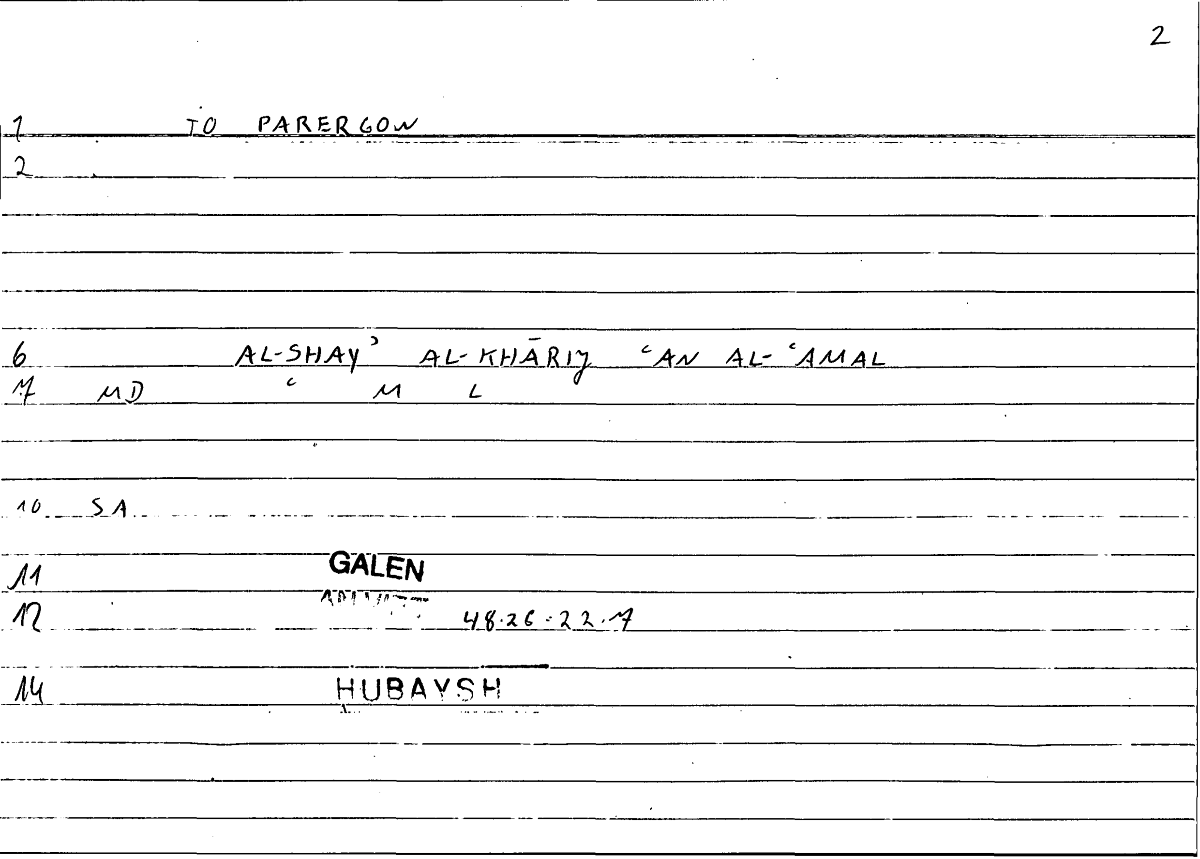 2
1 TO PARERGON
2
6 AL-SHAYʾ AL-KHĀRIJ ʿAN AL-ʿAMAL
7 MD ʿ M L
10 SA
11 GALEN
12 48.26.22.7
14 HUBAYSH